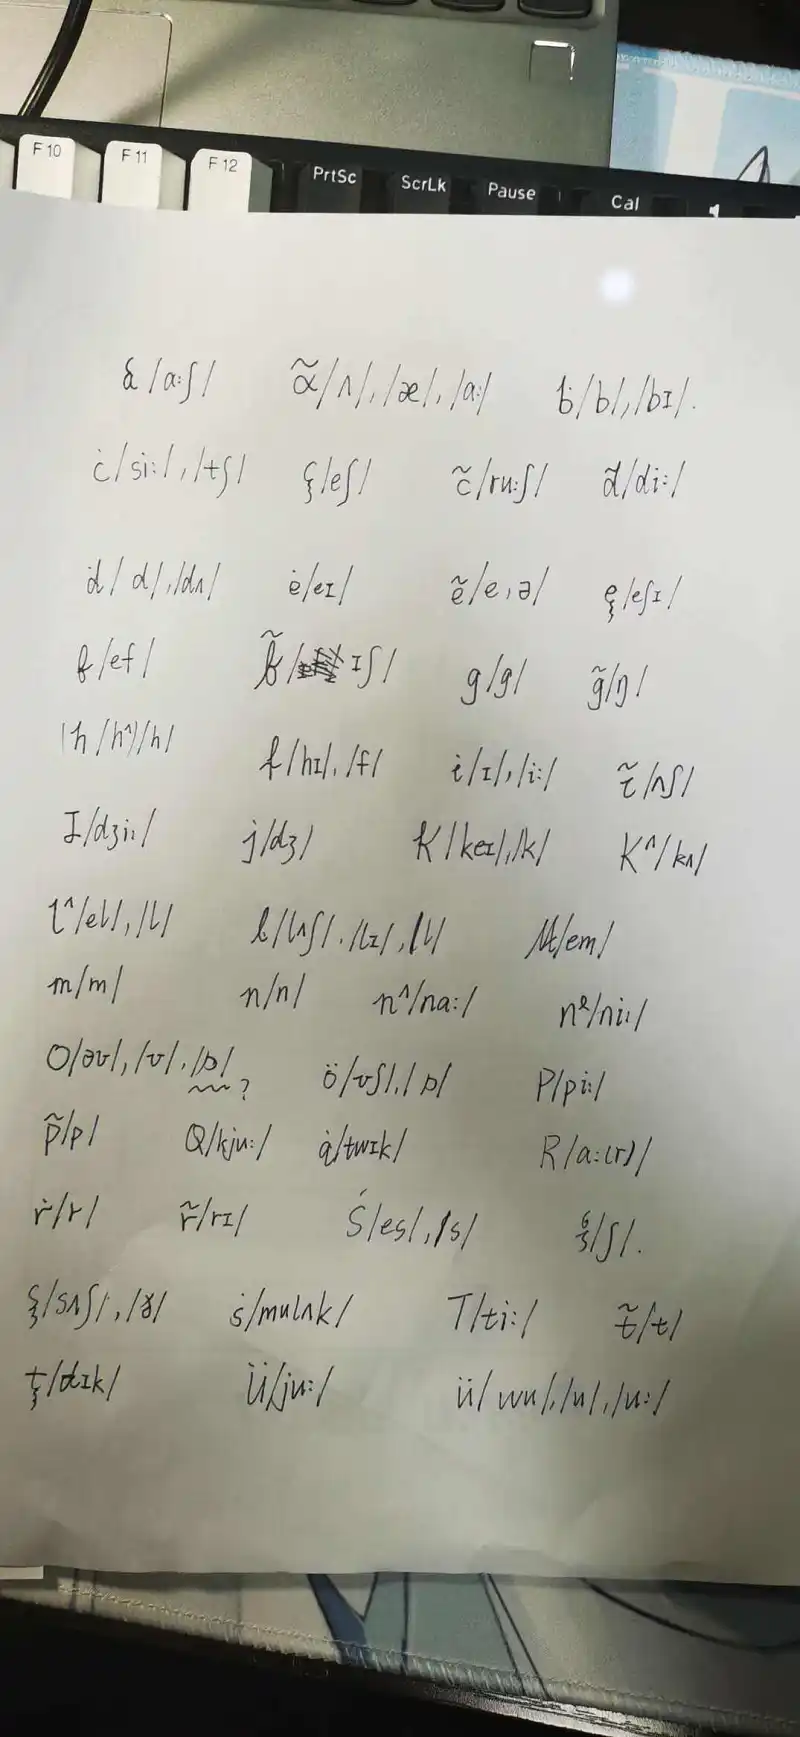 F10 F11 F12 PrtSc ScrLk Pause Cal
/ɑ:ʃ/ α̃/ʌ/, /æ/, /ɑ:/ ḃ/b/, /bɪ/.
ċ/si:/, /tʃ/ ç/eʃ/ c̃/ru:ʃ/ d̃/di:/
ḋ/d/, /dʌ/ ė/eɪ/ ẽ/e, ə/ ȩ/eʃɪ/
/ef/ ɪʃ/ g/g/ g̃/ŋ/
ħ/h^)/h/ /hɪ/, /f/ i/ɪ/, /i:/ /ʌʃ/
/dʒi:/ j/dʒ/ K/keɪ/, /k/ K^/kʌ/
l^/el/, /l/ /lʌʃ/, /lɪ/, /l/ /em/
m/m/ n/n/ n^/nɑ:/ nᵉ/ni:/
O/əʊ/, /ʊ/, /ɒ/
?
ö/ʊʃ/, /ɒ/ P/pi:/
p̃/p/ Q/kju:/ q̇/twɪk/ R/ɑ:(r)/
ṙ/r/ r̃/rɪ/ Ś/es/, /s/ /ʃ/.
/sʌʃ/, /ɣ/ ṡ/mulʌk/ T/ti:/ t̃/t/
ţ/dɪk/ Ü/ju:/ ü/wu/, /u/, /u:/